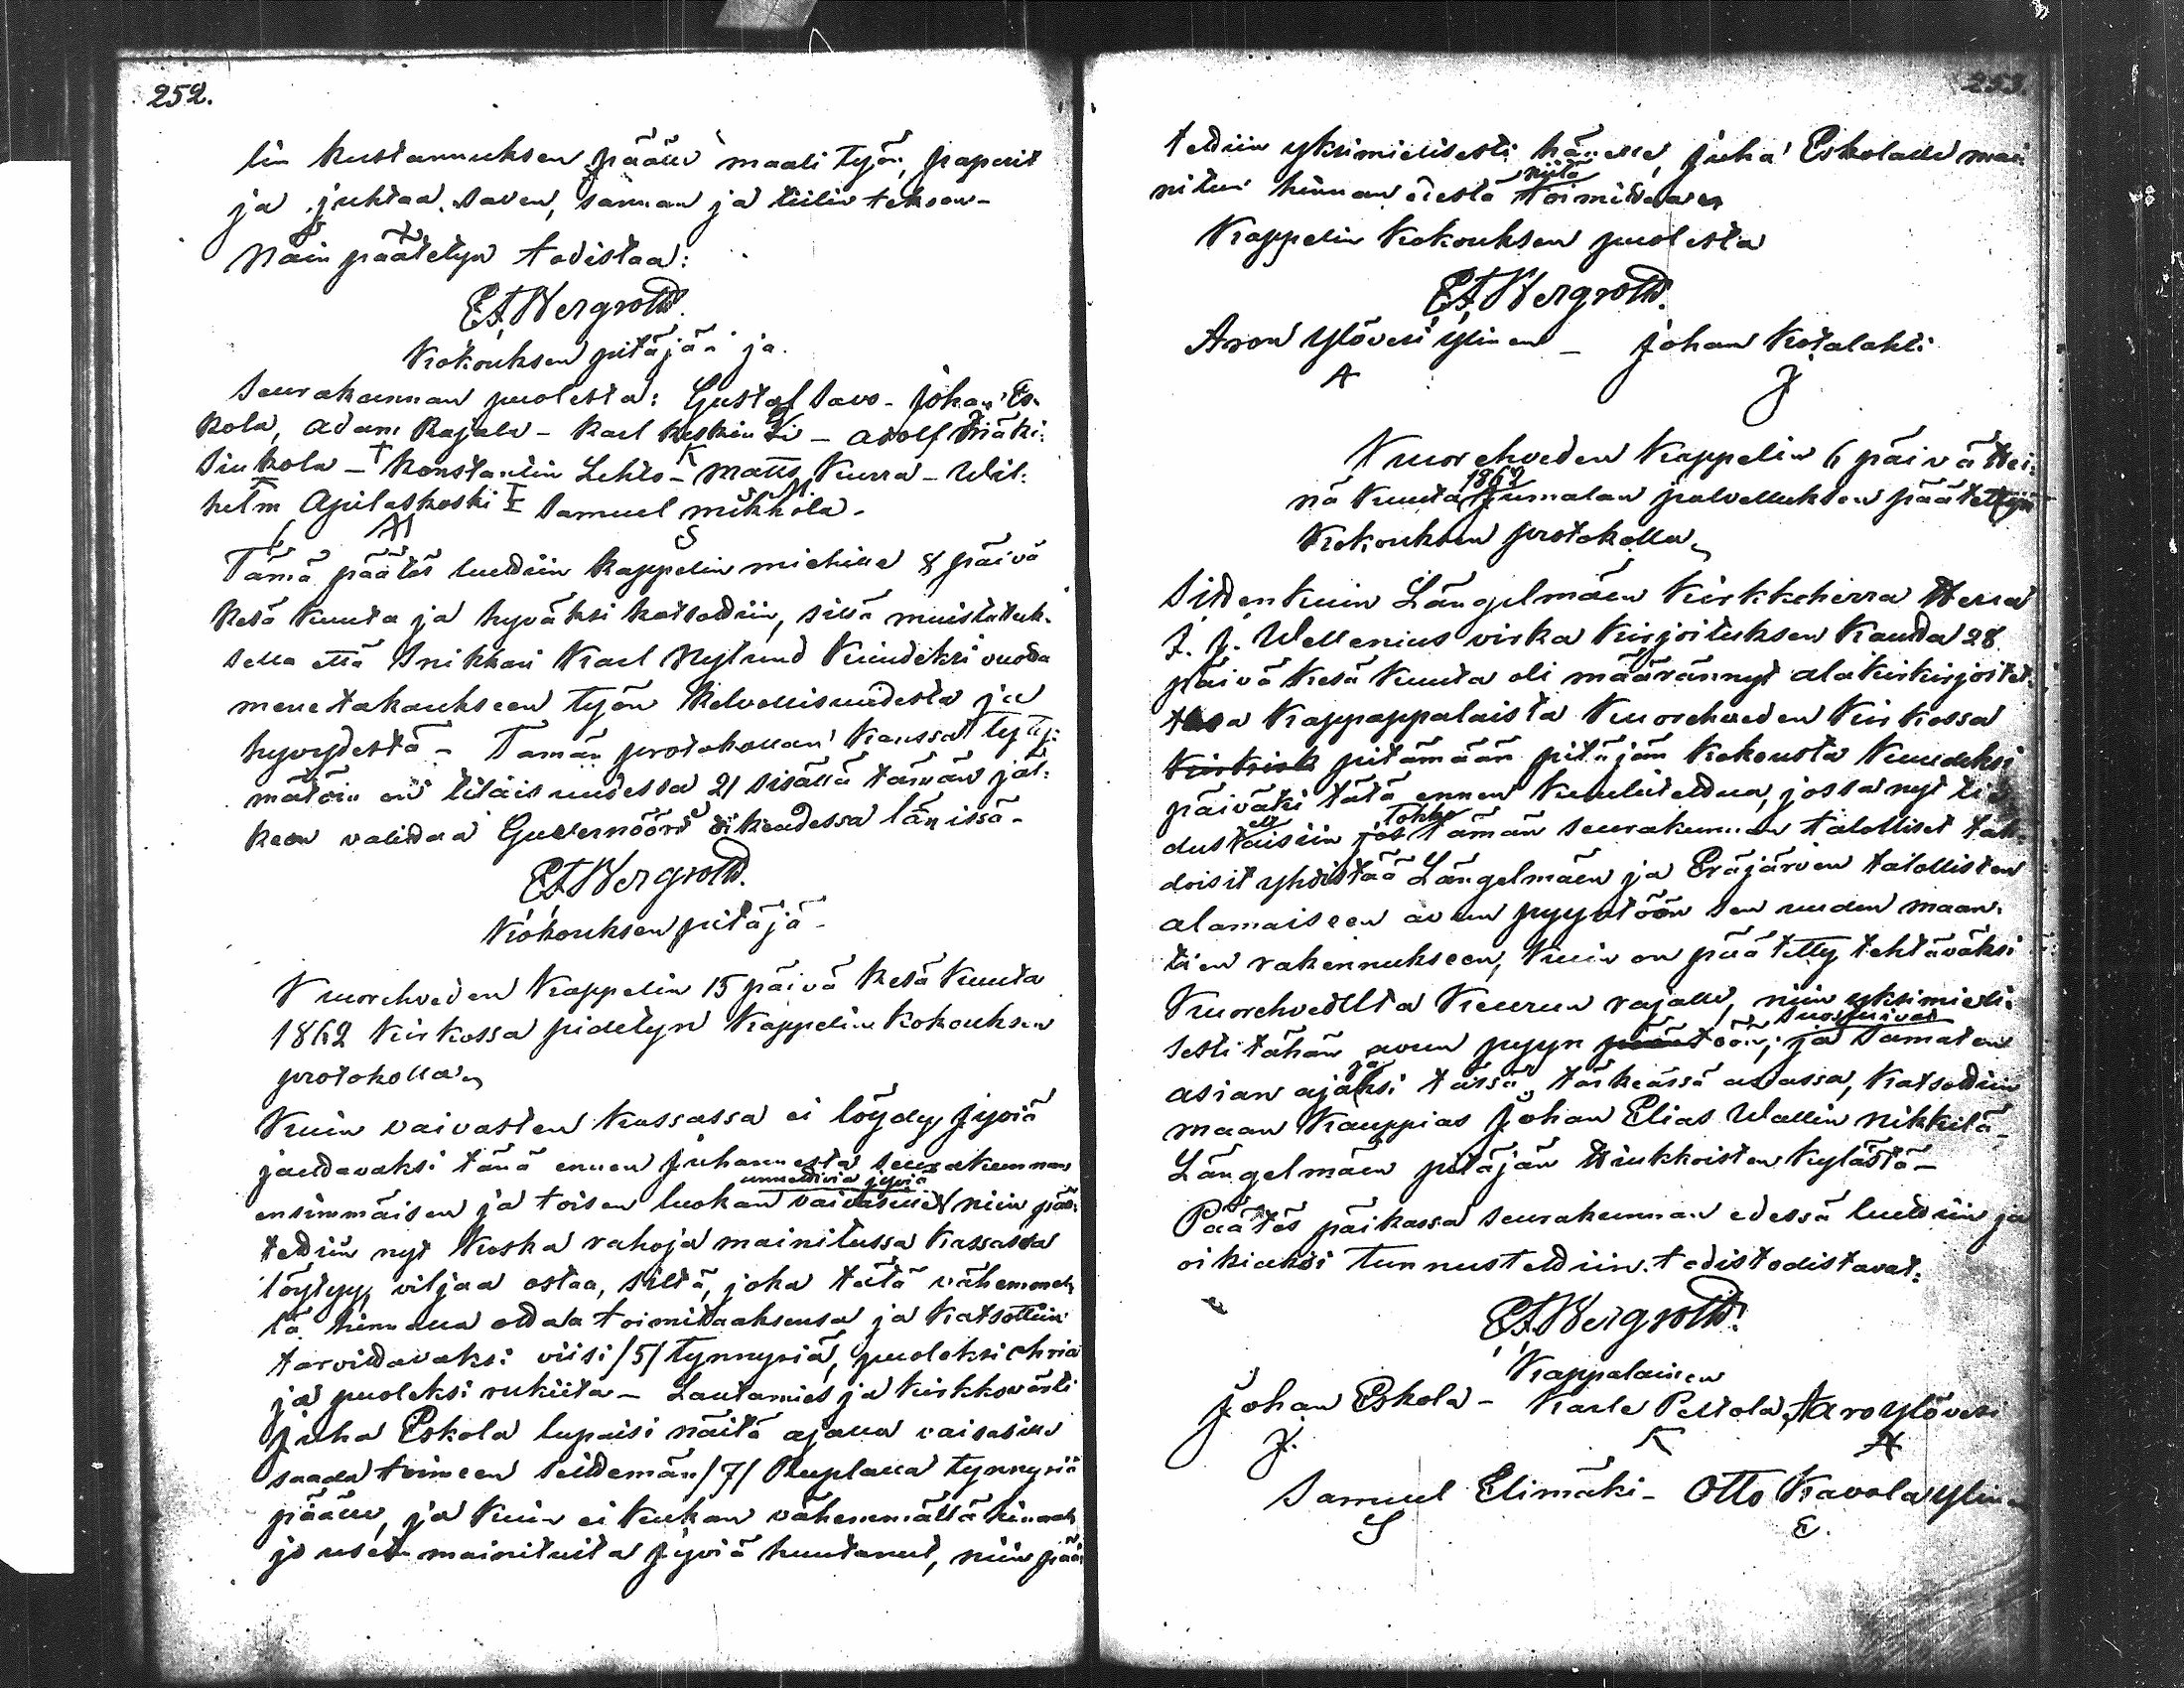 252.
lin kustannuksen päälle maali työn, paperit
ja juhtaa saven, sannan ja tiilin tekoon-
Näin päätetyn todistaa:
E.F. Bergroth.
Kokouksen pitäjä ja
Seurakunnan puolesta: Gustaf Savo - Johan Es-
kola, Adam Rajala - Karl Keskin - Adolf
Siukola - Konstantin Lehto - Matts Kurra - Wil-
helm Apilaskoski Samuel Mikkola -
K M
A S
Tämä päätös luettiin kappelin miehille 8 päivä
Kesä kuuta ja hyväksi katsottiin, sillä muistutuk-
sella että Snikkari Karl Nylund kuudeksi vuoda
menetakaukseen työn kelvollisuudesta ja
hyvydestä - Tämän protokollan kanssa tyyty-
mätöin on tilaisuudessa 21 sisällä tämän jäl-
keen valittaa Guvernöörin oikeudessa länissä -
E.F. Bergroth.
Kokouksen pitäjä -
Kuorehveden Kappelin 15 päivä Kesä kuuta
1862 kirkossa pidetyn Kappelin kokouksen
protokolla
Kuin vaivasten kassassa ei löydy jyviä
jaettavaksi tänä ennen Juhannesta seurakunnan
unnettivia jyviä
ensimmäisen ja toisen luokan vaivasille niin pää-
tettiin nyt koska rahoja mainitussa kassassa
löytyy, viljaa ostaa, siltä, joka tätä vähemmäl-
lä hinnalla ottaa toimittaaksensa ja katsottiin
tarvittavaksi viisi /5/ tynnyriä, puoleksi ohria
ja puoleksi rukiita - Lautamies ja kirkkovärti
Juha Eskola lupaisi näitä ajalla vaivasille
saada toimeen seittemän /7/ Ruplalla tynnyriä
päälle, ja kuin ei kukaan vähemmällä hinnalla
jo usein mainituita jyviä huutanut, niin pää-
253.
tettiin yksimielisesti hänelle, Juha Eskolalle mai-
niitä
nitun hinnan edestä toimittaa
Kappelin kokouksen puolesta
E.F. Bergroth.
Aron Ylövesi Ylinen - Johan Kotalahti
A J
Kuorehveden Kappelin 6 päivä Hei-
1862
nä kuuta Jumalan palvelluksen päätettyä
kokouksen protokolla
Sitten kuin Längelmäen kirkkoherra Herra
J. J. Wellenius virka kirjoituksen kautta 28
päivä Kesä kuuta oli määrännyt alakirjoitet-
tua Kappappalaista Kuorehveden kirkossa
kirkirk pitämään pitäjän kokousta kuudeksi
päiväksi tätä ennen kuuluteltua, jossa nyt tie-
Tokko
dustaisiin jos tämän seurakunnan talolliset tah-
doisit yhdistää Längelmäen ja Eräjärven talollisten
alamaiseen avun pyyntöön sen uuden maan-
tien rakennukseen, kuin on päätetty tehtäväksi
Kuorehvedeltä Keurun rajalle, niin yksimieli-
suostuivat
sesti tähän avun pyyn töön, ja samaten
ja
asian ajaksi tässä tärkeässä asiassa, katsottiin
maan kauppias Johan Elias Wallin Nikkilä -
Längelmäen pitäjän Hiukkoisten kylästä -
Päätös paikassa seurakunnan edessä luettiin ja
oikiaksi tunnustettiin todistodistavat:
E.F. Bergroth.
Kappalainen
Johan Eskola - Karle Pettola, Aaro Ylövesi
J. K A
Samuel Elimäki - Otto Kavola Ylinen
S E.